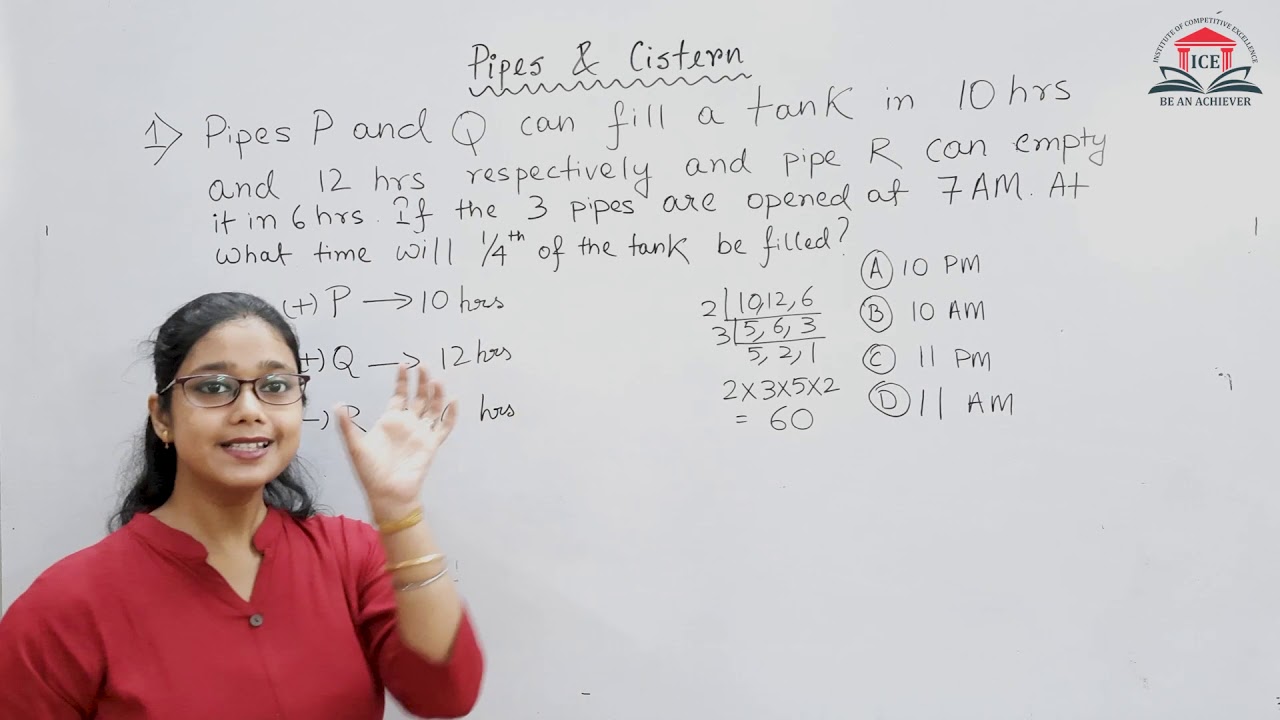 Pipes & Cistern
1) Pipes P and Q can fill a tank in 10 hrs
and 12 hrs respectively and pipe R can empty
it in 6 hrs. If the 3 pipes are opened at 7 AM. At
what time will 1/4th of the tank be filled?
(+) P → 10 hrs
(+) Q → 12 hrs
(-) R hrs
2 | 10, 12, 6
3 | 5, 6, 3
5, 2, 1
2x3x5x2
= 60
(A) 10 PM
(B) 10 AM
(C) 11 PM
(D) 11 AM
INSTITUTE OF COMPETITIVE EXCELLENCE
ICE
BE AN ACHIEVER